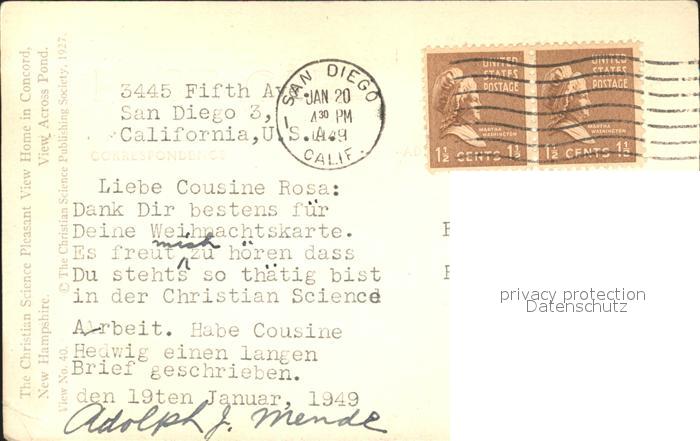 The Christian Science Pleasant View Home in Concord,
New Hampshire. View, Across Pond.
View No. 40. © The Christian Science Publishing Society, 1927.
3445 Fifth Ave
San Diego 3,
California, U.S.A.
SAN DIEGO
JAN 20
4 30 PM
1949
CALIF.
UNITED
STATES
POSTAGE
MARTHA
WASHINGTON
1½ CENTS 1½
UNITED
STATES
POSTAGE
MARTHA
WASHINGTON
1½ CENTS 1½
CORRESPONDENCE
Liebe Cousine Rosa:
Dank Dir bestens für
Deine Weihnachtskarte.
Es freut mich zu hören dass
Du stehts so thätig bist
in der Christian Science
Arbeit. Habe Cousine
Hedwig einen langen
Brief geschrieben.
den 19ten Januar, 1949
Adolph J. Mende
privacy protection
Datenschutz